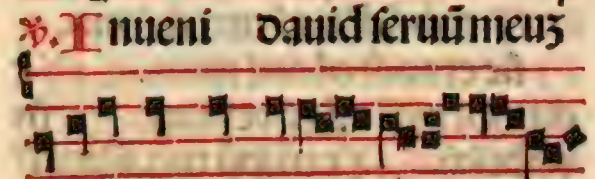 ℣. Inueni dauid seruū meuʒ